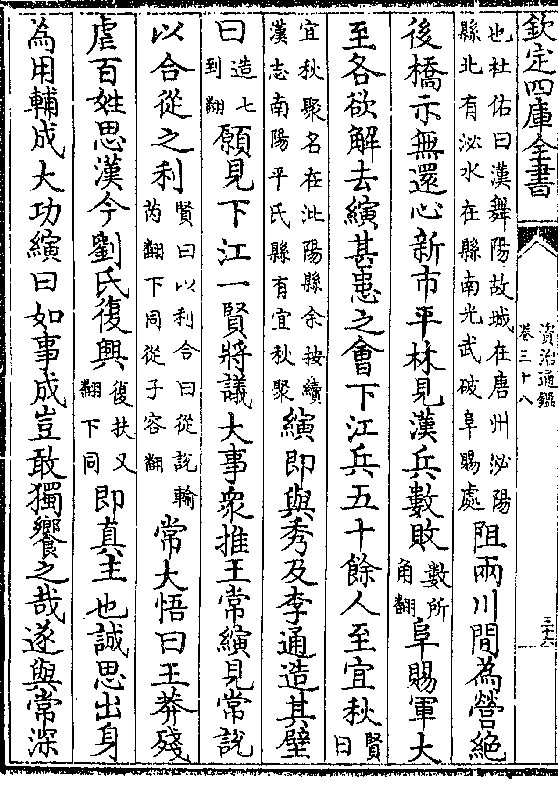 欽定四庫全書
資治通鑑
卷三十八
三十六
也杜佑曰漢舞陽故城在唐州泌陽
縣北有泌水在縣南光武破阜賜處
阻兩川間為營絶
後橋示無還心新市平林見漢兵數敗
數所
角翻
阜賜軍大
至各欲解去縯甚患之會下江兵五千餘人至宜秋
賢曰
宜秋聚名在沘陽縣余按續
漢志南陽平氏縣有宜秋聚
縯即與秀及李通造其壁
曰
造七
到翻
願見下江一賢將議大事衆推王常縯見常說
以合從之利
賢曰以利合曰從說輸
芮翻下同從子容翻
常大悟曰王莽殘
虐百姓思漢今劉氏復興
復扶又
翻下同
即真主也誠思出身
為用輔成大功縯曰如事成豈敢獨饗之哉遂與常深